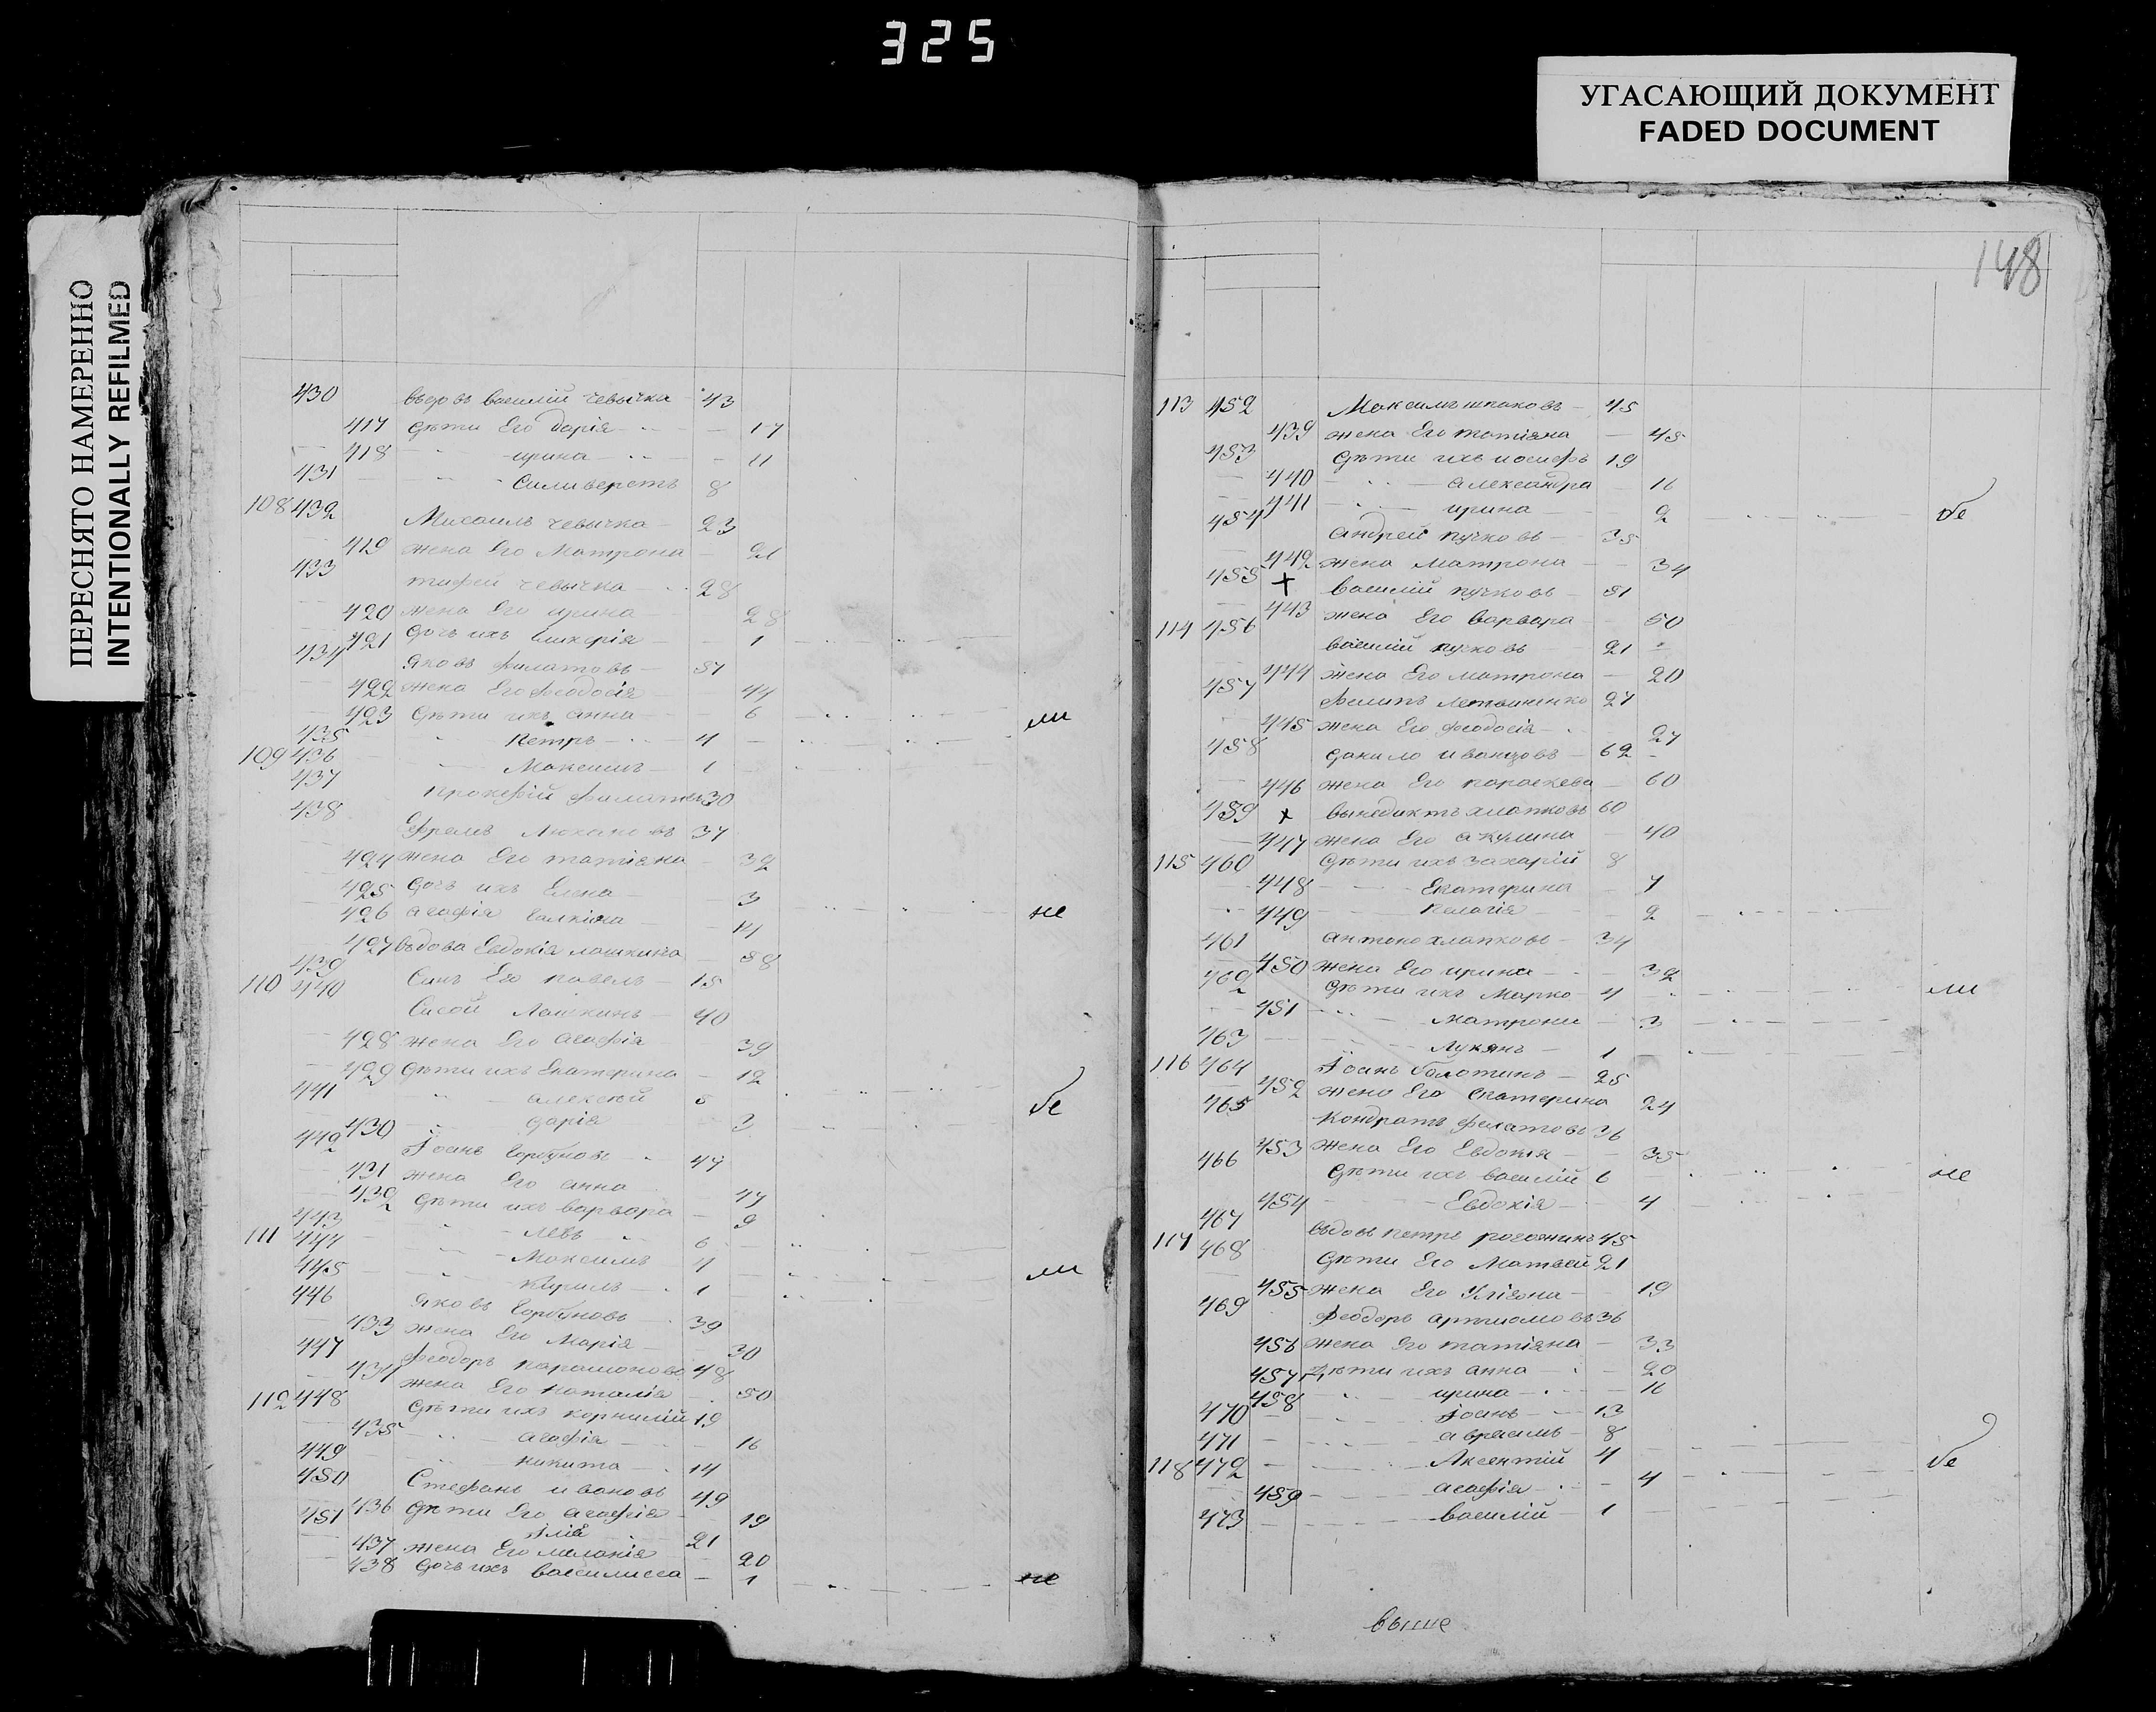 325
УГАСАЮЩИЙ ДОКУМЕНТ
FADED DOCUMENT
ПЕРЕСНЯТО НАМЕРЕННО
INTENTIONALLY REFILMED
430 василій Чевычка 43
417 дѣти Его дарія 17
418 ирина 11
431 Силиверстъ 8
108 432 Михаилъ Чевычка 23
419 жена Его Матрона 21
433 Чевычка 28
420 жена Его ирина 28
421 дочь ихъ 1
434 Яковъ Филатовъ 51
422 жена Его Феодосія 44
423 дѣти ихъ анна 6 ли
435 Петръ 4
109 436 Максимъ 1
437 Прокофій 30
438 Ефремъ 37
424 жена Его татіяна 32
425 дочь ихъ Елена 3
426 агафія не
427 въдова Евдокія лашкина 58
439 Сынъ Его павелъ 15
110 440 Сисой Лашкинъ 40
428 жена Его агафія 39
429 дѣти ихъ Екатерина 12
441 алексѣй 5 бе
430 дарія 3
442 Іоанъ Горбуновъ 47
431 жена Его анна 47
432 дѣти ихъ варвара 9
443 левъ 6
111 444 Максимъ 4
445 Кирилъ 1 ли
446 Яковъ Горбуновъ 39
433 жена Его Марія 30
447 Феодоръ парамоновъ 48
434 жена Его наталія 50
112 448 дѣти ихъ корнилій 19
435 агафія 16
449 никита 14
450 Стефанъ ивановъ 49
436 дѣти Его агафія 19
451 илія 21
437 жена Его маланія 20
438 дочь ихъ василисса 1 не
148
113 452 Максимъ шпаковъ 45
439 жена Его татіяна 45
453 дѣти ихъ иосифъ 19
440 александра 16
441 ирина 2 бе
454 андрей пучковъ 35
442 жена матрона 34
455 + василій пучковъ 51
443 жена Его варвара 50
114 456 василій пучковъ 21
444 жена Его матрона 20
457 Филипъ 27
445 жена Его феодосія 27
458 данило 62
446 жена Его параскева 60
459 + хлапковъ 60
447 жена Его акулина 40
115 460 дѣти ихъ захарій 8
448 Екатерина 7
449 пелагія 2
461 антонъ хлапковъ 34
450 жена Его ирина 32
462 дѣти ихъ Марко 4 ли
451 матрона 3
463 Лукянъ 1
116 464 Іоанъ болотинъ 25
452 жена Его Екатерина 24
465 Кондратъ филатовъ 36
453 жена Его Евдокія 35
466 дѣти ихъ василій 6 не
454 Евдокія 4
467 петръ рогожинъ 45
117 468 дѣти Его Матвей 21
455 жена Его 19
469 Феодоръ артиомовъ 36
456 жена Его татіяна 33
457 дѣти ихъ анна 20
458 ирина 16
470 Іоанъ 13
471 авраамъ 8
118 472 Аксентій 4 бе
459 агафія 4
473 василій 1
выше